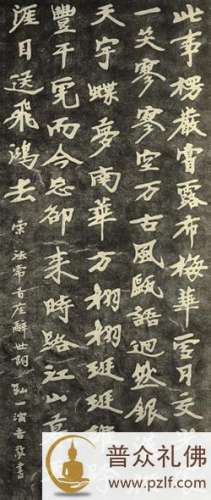 此事楞嚴嘗露布梅華雪月交
一笑寥寥空万古風甌語迥然銀
天宇蝶夢南華方栩栩班班
豐干虎而今忘卻来時路江山
涯目送飛鴻去
宋法常首座辭世詞 弘一演音敬書
普众礼佛
www.pzlf.com